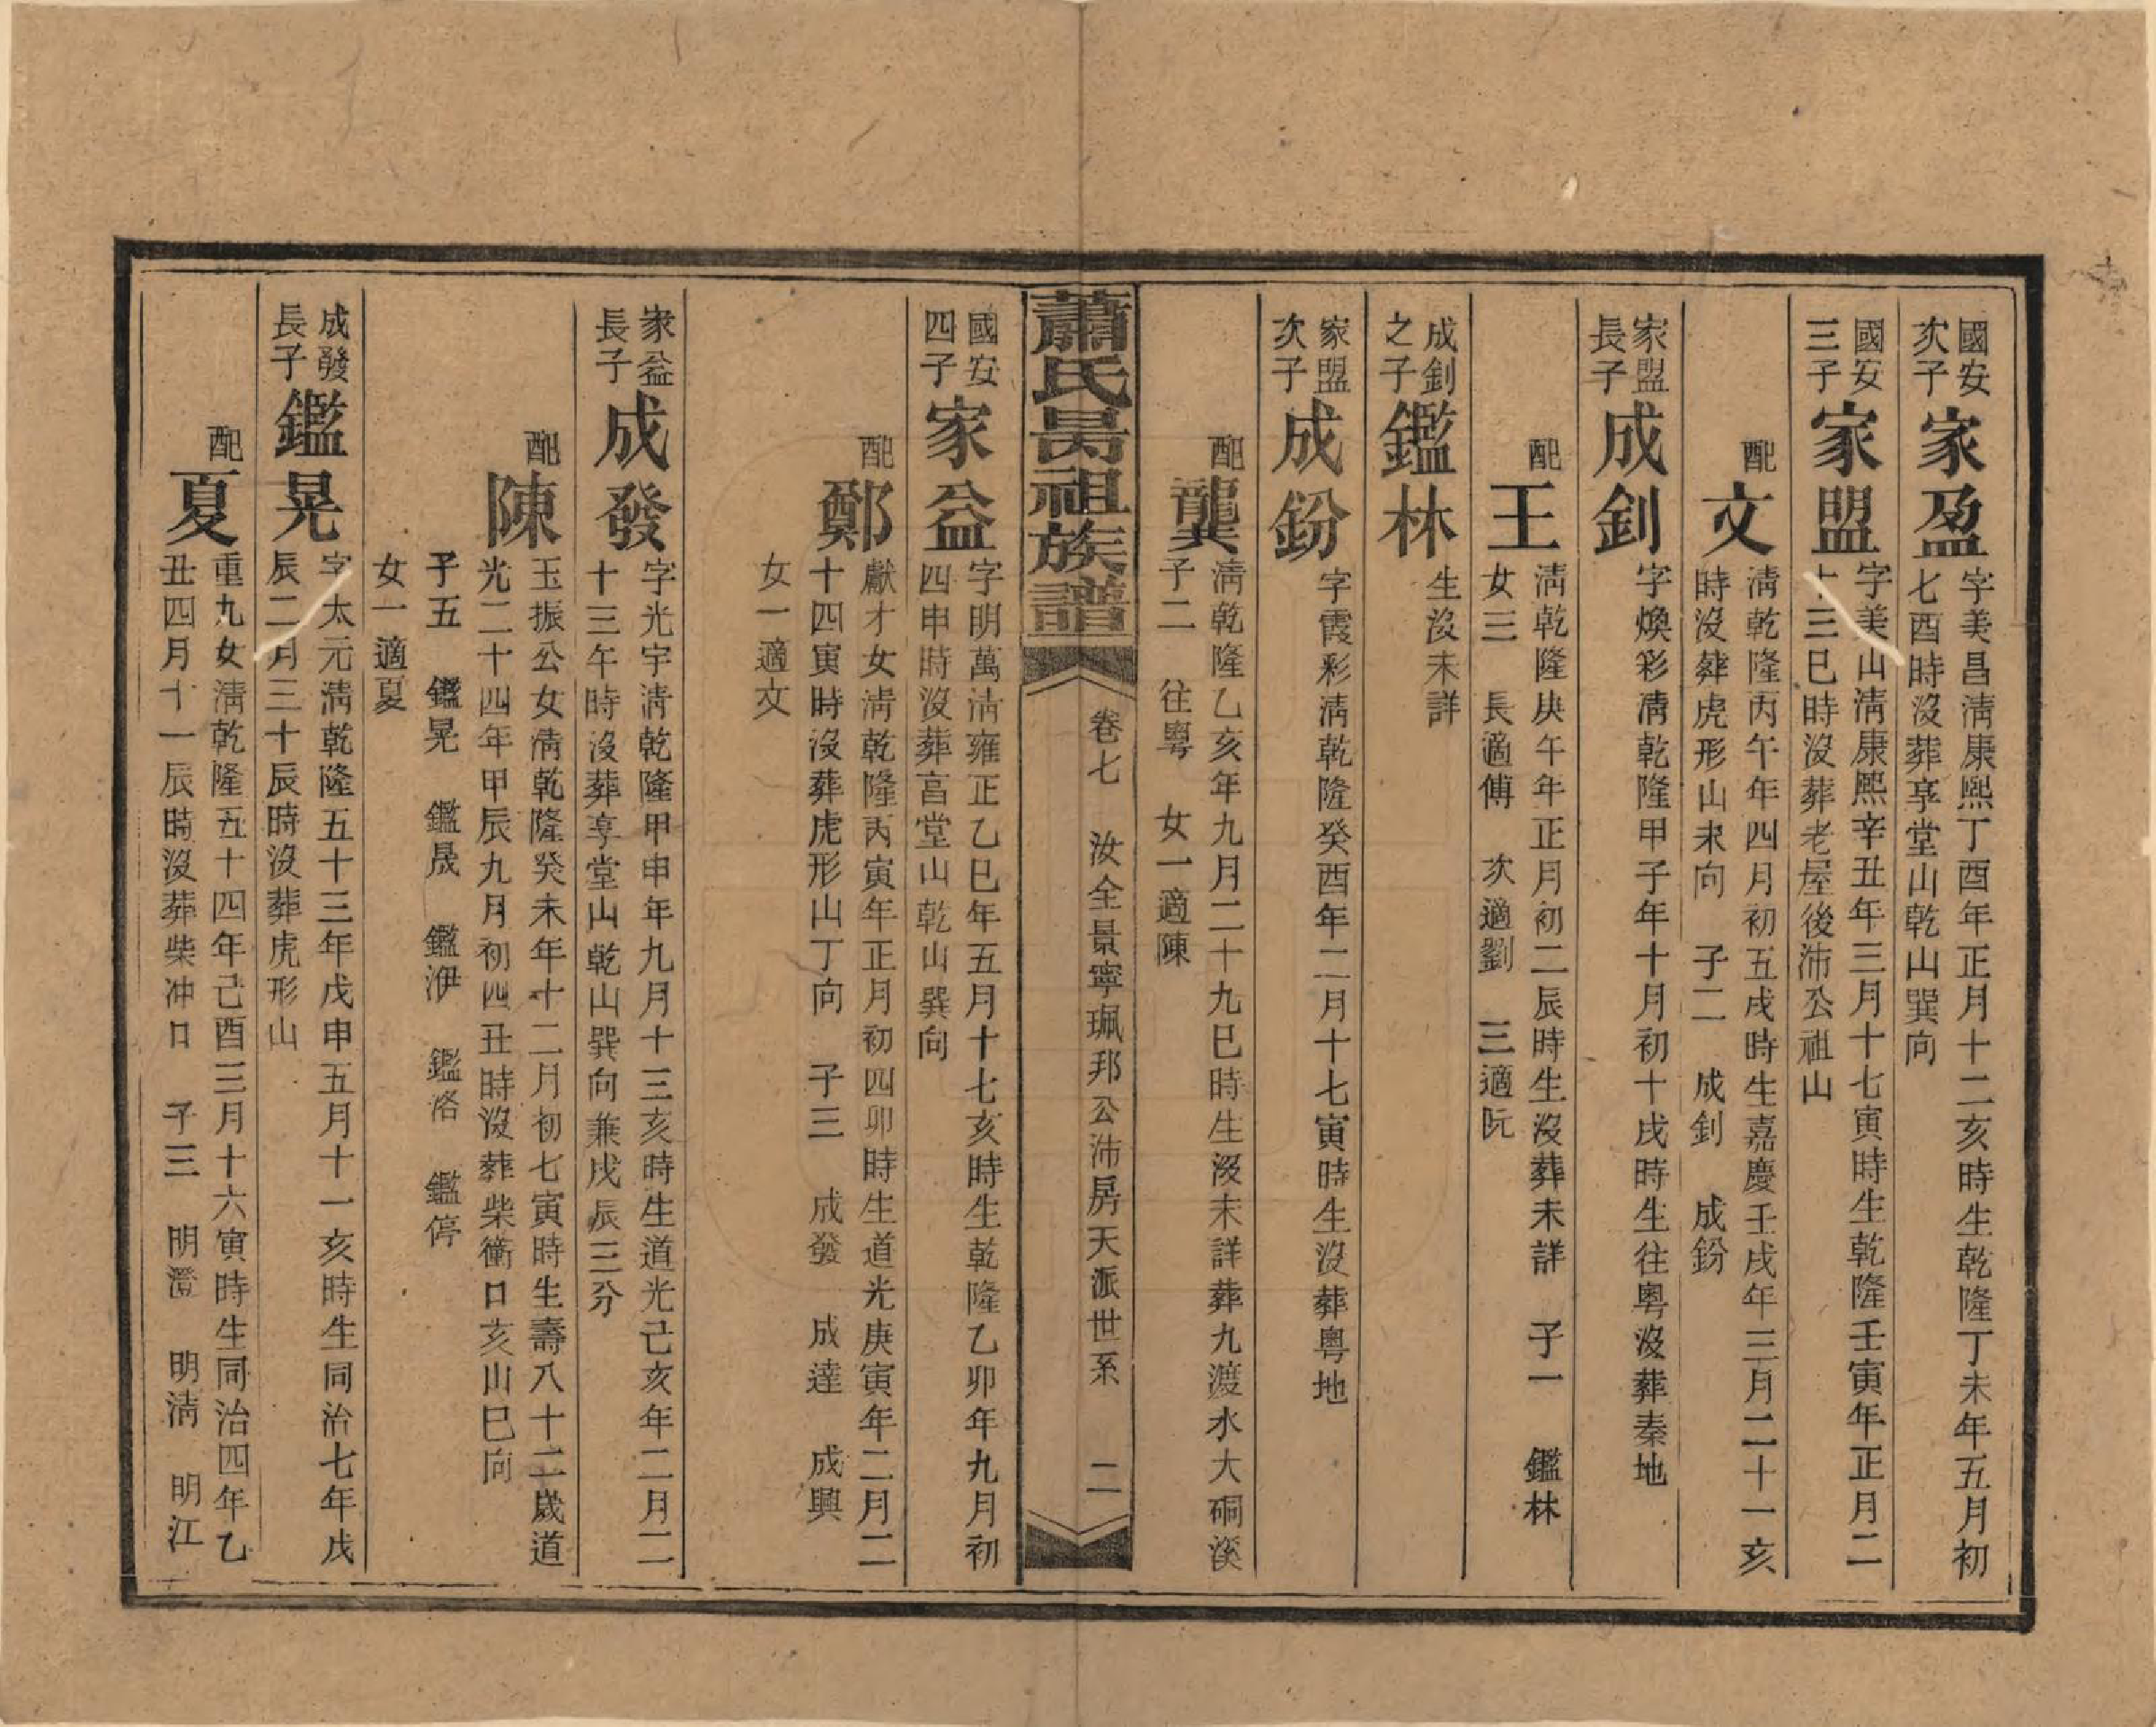 國安
次子
家盈
字美昌淸康熙丁酉年正月十二亥時生乾隆丁未年五月初
七酉時沒葬享堂山乾山巽向
國安
三子
家盟
字美山淸康熙辛丑年三月十七寅時生乾隆壬寅年正月二
十三巳時沒葬老屋後沛公祖山
配
文
淸乾隆丙午年四月初五戌時生嘉慶壬戌年三月二十一亥
時沒葬虎形山未向 子二 成釗 成鈖
家盟
長子
成釗
字煥彩淸乾隆甲子年十月初十戌時生往粵沒葬秦地
配
王
淸乾隆庚午年正月初二辰時生沒葬未詳 子一 鑑林
女三 長適傅 次適劉 三適阮
成釗
之子
鑑林
生沒未詳
家盟
次子
成鈖
字霞彩淸乾隆癸酉年二月十七寅時生沒葬粵地
配
龔
淸乾隆乙亥年九月二十九巳時生沒未詳葬九渡水大硐溪
子二 往粵 女一適陳
蕭氏昺祖族譜
卷七 汝全景寧珮邦公沛房天派世系 二
國安
四子
家益
字明萬淸雍正乙巳年五月十七亥時生乾隆乙卯年九月初
四申時沒葬亯堂山乾山巽向
配
鄭
獻才女淸乾隆丙寅年正月初四卯時生道光庚寅年二月二
十四寅時沒葬虎形山丁向 子三 成發 成達 成興
女一適文
家益
長子
成發
字光宇淸乾隆甲申年九月十三亥時生道光己亥年二月二
十三午時沒葬享堂山乾山巽向兼戌辰三分
配
陳
玉振公女淸乾隆癸未年十二月初七寅時生壽八十二歲道
光二十四年甲辰九月初四丑時沒葬柴衝口亥山巳向
子五 鑑晃 鑑晟 鑑洢 鑑洛 鑑停
女一適夏
成發
長子
鑑晃
字太元淸乾隆五十三年戊申五月十一亥時生同治七年戊
辰二月三十辰時沒葬虎形山
配
夏
重九女淸乾隆五十四年己酉三月十六寅時生同治四年乙
丑四月十一辰時沒葬柴冲口 子三 明瀅 明淸 明江